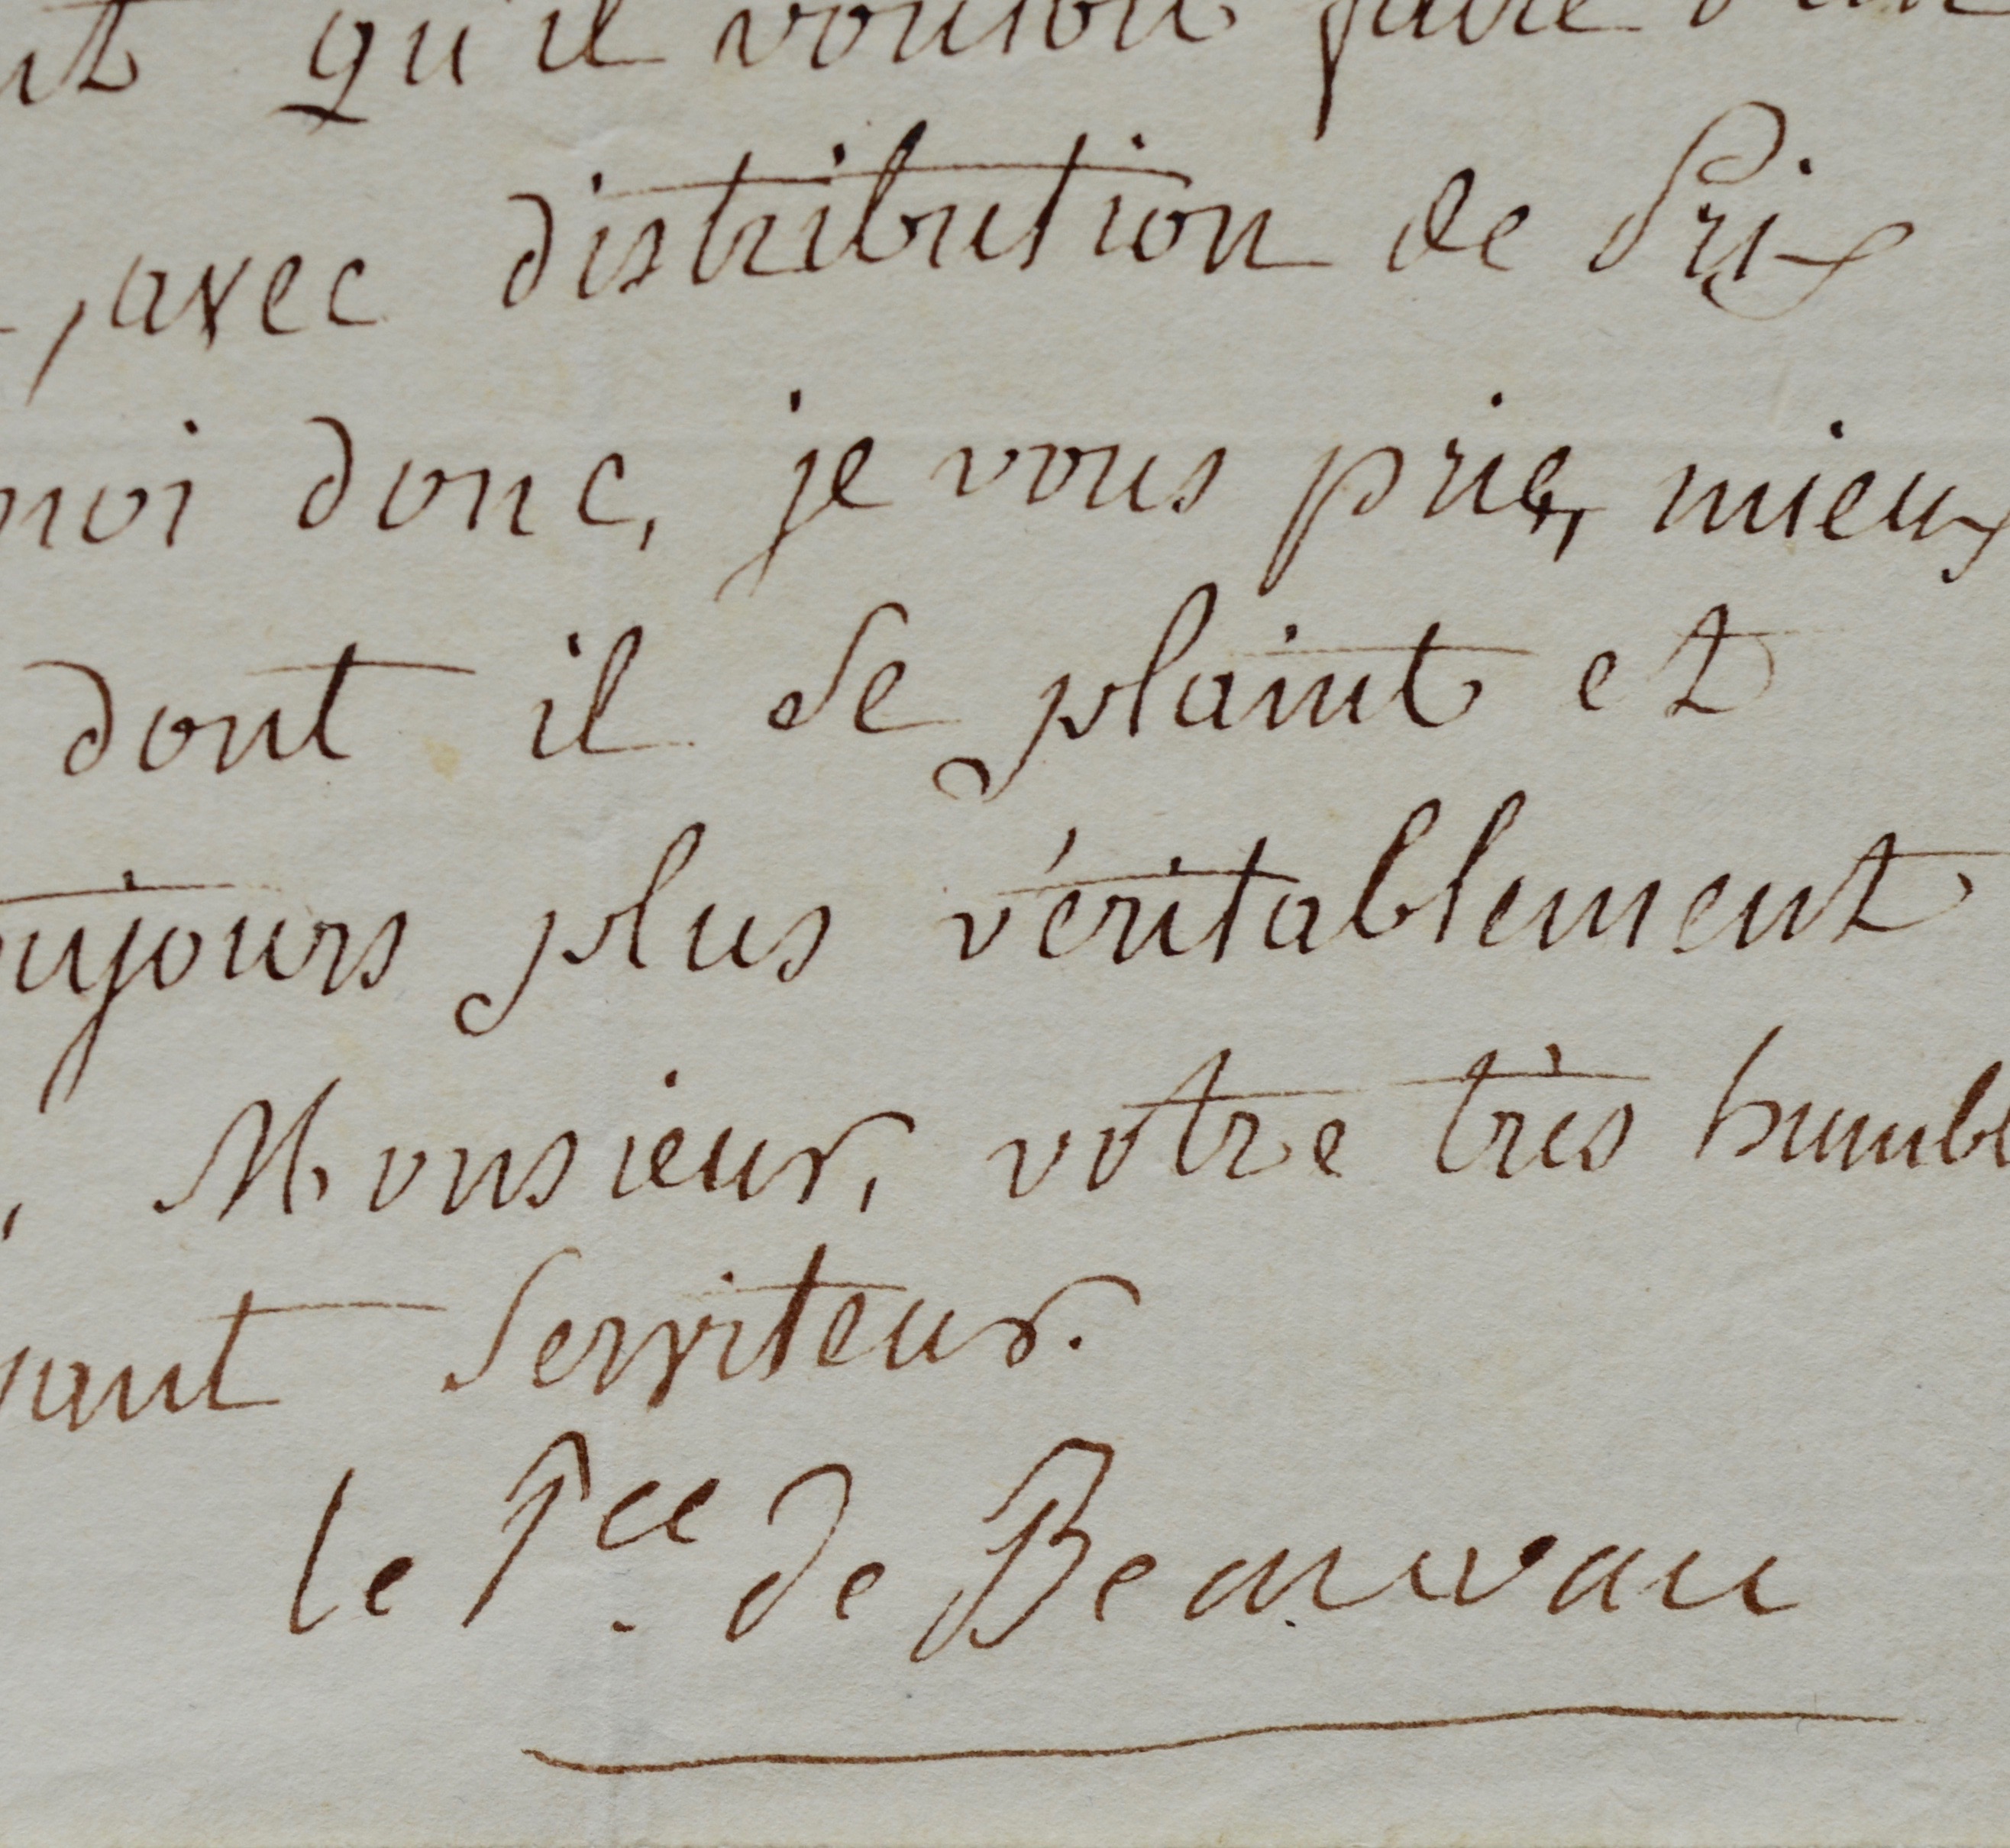 qu'il vouloit faire
, avec distribution de Prix
donc, je vous prie, mieux
dont il se plaint et
oujours plus véritablement
, Monsieur, votre très humbl
serviteur.
le Pce de Beauvau